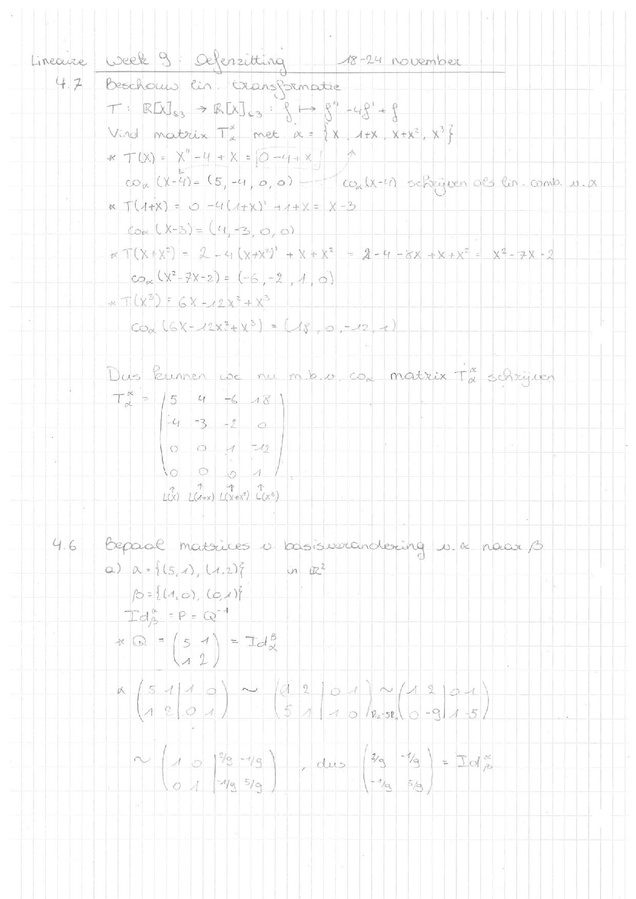 Lineaire Week 9: Oefenzitting 18-24 november
4.7 Beschouw lin. transformatie
T: ℝ[X]≤3 → ℝ[X]≤3 : f ↦ f'' -4f' + f
Vind matrix T_α^α met α = {X, 1+X, X+X², X³}
* T(X) = X'' -4 + X = 0-4+X
co_α(X-4) = (5, -4, 0, 0) co_α(X-4) schrijven als lin. comb. v. α
* T(1+X) = 0 -4(1+X)' +1+X = X-3
co_α(X-3) = (4, -3, 0, 0)
* T(X+X²) = 2 - 4(X+X²)' + X + X² = 2-4-8X+X+X² = X²-7X-2
co_α(X²-7X-2) = (-6, -2, 1, 0)
* T(X³) = 6X -12X² + X³
co_α(6X-12X²+X³) = (18, 0, -12, 1)
Dus kunnen we nu m.b.v. co_α matrix T_α^α schrijven
T_α^α = (5 4 -6 18
-4 -3 -2 0
0 0 1 -12
0 0 0 1)
↑ ↑ ↑ ↑
L(X) L(1+X) L(X+X²) L(X³)
4.6 Bepaal matrices v basisverandering v. α naar β
a) α = {(5,1), (1,2)} in ℝ²
β = {(1,0), (0,1)}
Id_β^α = P = Q⁻¹
* Q = (5 1 = Id_α^β
1 2)
* (5 1 | 1 0) ~ (1 2 | 0 1) ~ (1 2 | 0 1)
(1 2 | 0 1) (5 1 | 1 0) R₂-5R₁ (0 -9 | 1 -5)
~ (1 0 | 2/9 -1/9) , dus (2/9 -1/9) = Id_β^α
(0 1 | -1/9 5/9) (-1/9 5/9)